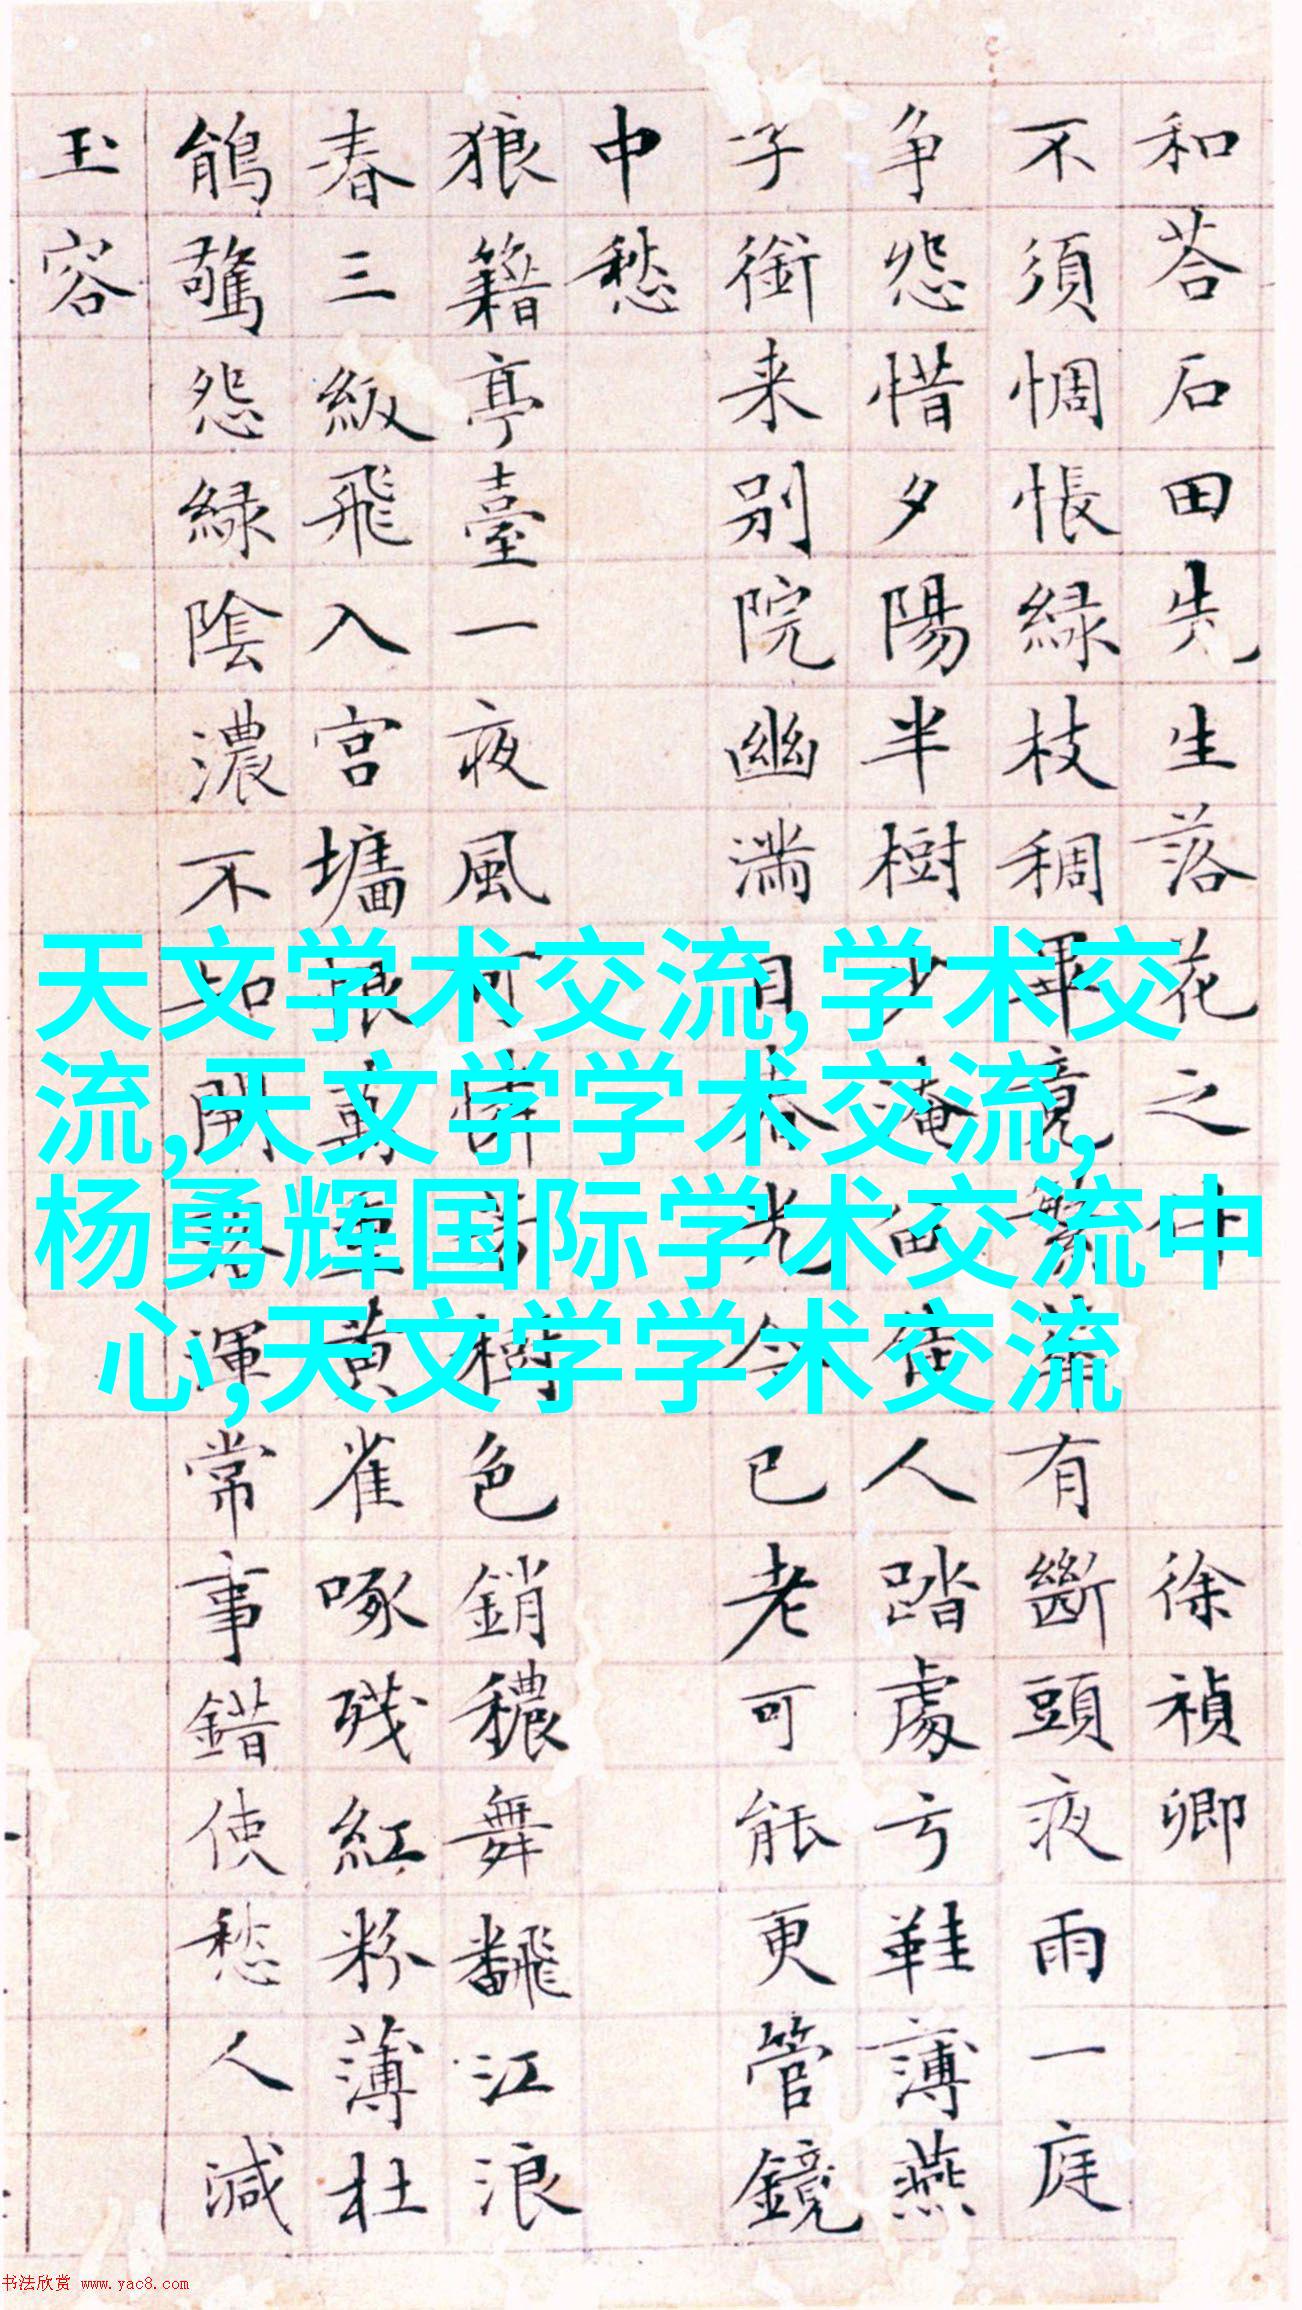 和荅石田先生落花之什 徐禎卿
不須惆悵綠枝稠畢竟繁華有斷頭夜雨一庭
争怨惜夕陽半樹少淹留佳人踏處弓鞋薄燕
子銜来别院幽滿目春光今已老可能更管鏡
中愁
狼籍亭臺一夜風可憐芳樹色銷穠舞飜江浪
春三級飛入宮墻恨萬重黃雀啄殘紅粉薄杜
鵑驚怨綠陰濃不知開落渾常事錯使愁人減
玉容
天文学术交流,学术交
流,天文学学术交流,
杨勇辉国际学术交流中
心,天文学学术交流
书法欣赏 www.yac8.com